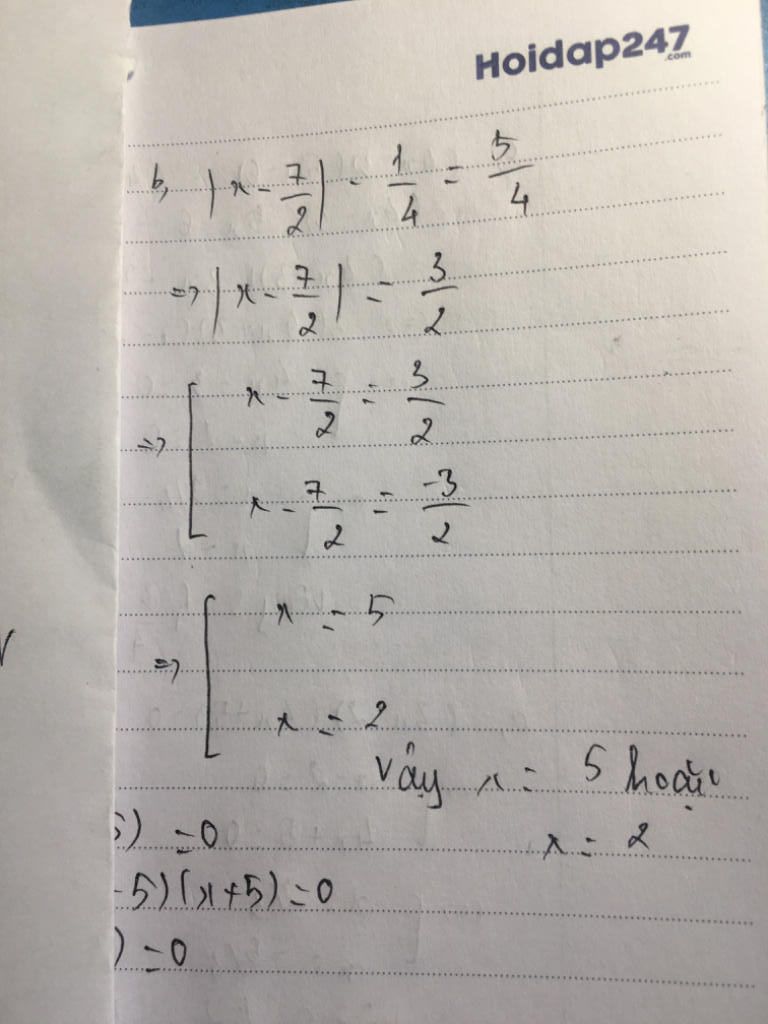 Hoidap247
.com
b, |x - 7/2| - 1/4 = 5/4
=> |x - 7/2| = 3/2
=> [ x - 7/2 = 3/2
x - 7/2 = -3/2
=> [ x = 5
x = 2
Vậy x = 5 hoặc
x = 2
) = 0
-5)(x+5) = 0
) = 0